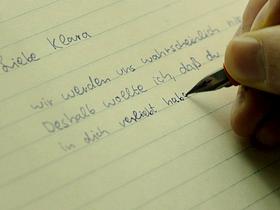 Liebe Klara
wir werden uns wahrscheinlich
Deshalb wollte ich, daß du
in dich verliebt hab